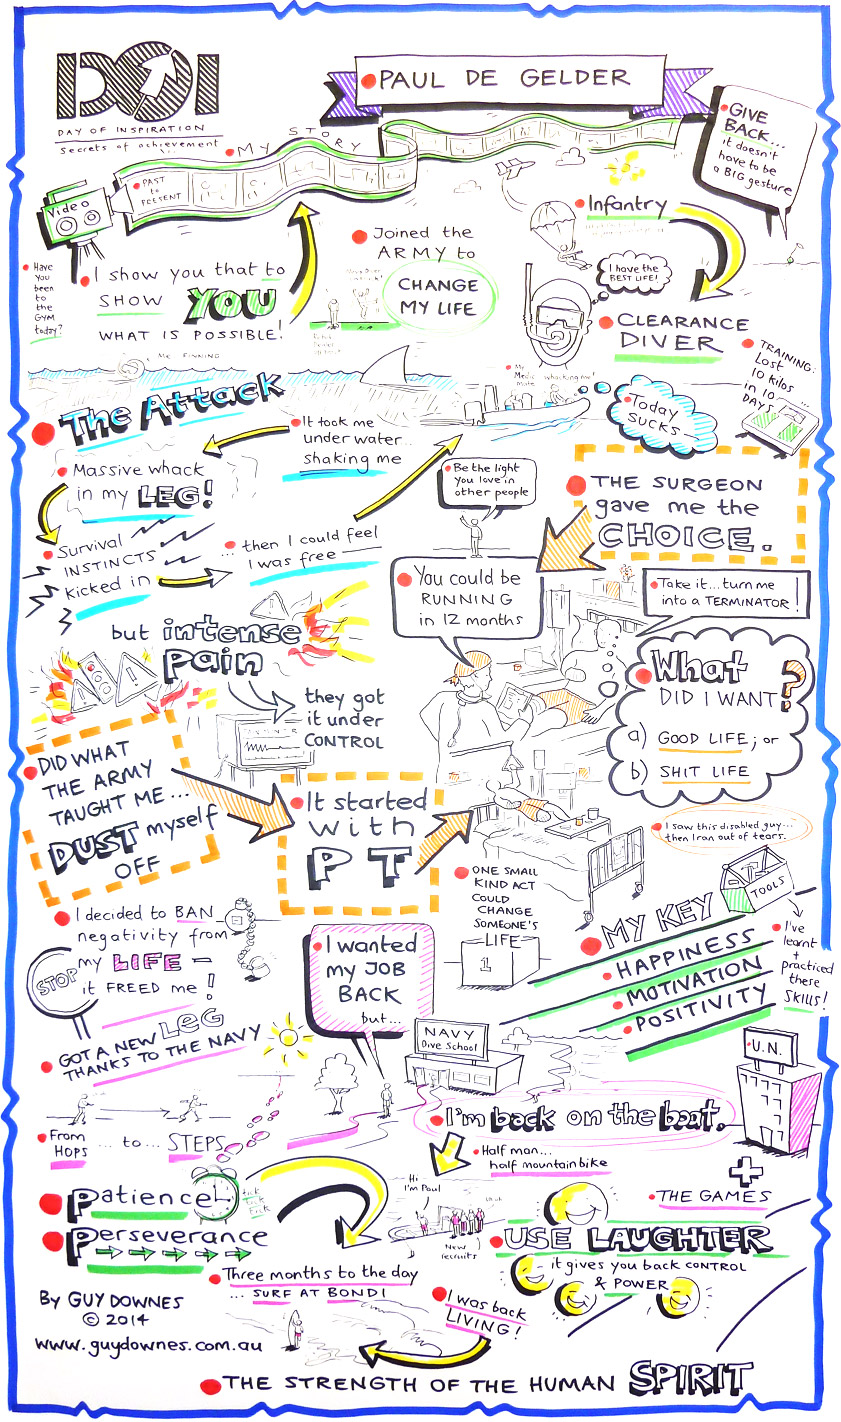 DOI
DAY OF INSPIRATION
Secrets of achievement
PAUL DE GELDER
GIVE
BACK...
it doesn't
have to be
a BIG gesture
MY STORY
Video
PAST
to
PRESENT
Infantry
Have
you
been
to
the
GYM
today?
I show you that to
SHOW YOU
WHAT IS POSSIBLE!
Joined the
ARMY to
CHANGE
MY LIFE
I have the
BEST LIFE!
CLEARANCE
DIVER
TRAINING:
Lost
10 kilos
in 10
DAYS
ME FINNING
The Attack
It took me
under water
shaking me
My
Medic
Mate
whacking me!
Today
SUCKS...
Massive whack
in my LEG!
Survival
INSTINCTS
kicked in
... then I could feel
I was free
Be the light
you love in
other people
THE SURGEON
gave me the
CHOICE.
You could be
RUNNING
in 12 months
Take it... turn me
into a TERMINATOR!
but intense
pain
they got
it under
CONTROL
What
DID I WANT?
a) GOOD LIFE; or
b) SHIT LIFE
DID WHAT
THE ARMY
TAUGHT ME...
DUST myself
OFF
It started
with
PT
I saw this disabled guy...
then I ran out of tears.
ONE SMALL
KIND ACT
COULD
CHANGE
SOMEONE'S
LIFE
1
TOOLS
MY KEY
HAPPINESS
MOTIVATION
POSITIVITY
I've
learnt
+
practiced
these
SKILLS!
I decided to BAN
negativity from
my LIFE –
it FREED me!
STOP
I wanted
my JOB
BACK
but...
GOT A NEW LEG
THANKS TO THE NAVY
NAVY
Dive School
U.N.
From
HOPS ... to ... STEPS
I'm back on the boat.
Half man...
half mountain bike
+
THE GAMES
Patience
tick
tick
tick
Perseverance
Hi
I'm Paul
Uh oh
New
recruits
USE LAUGHTER
it gives you back CONTROL
& POWER
Three months to the day
... SURF AT BONDI
I was back
LIVING!
By GUY DOWNES
© 2014
www.guydownes.com.au
THE STRENGTH OF THE HUMAN SPIRIT